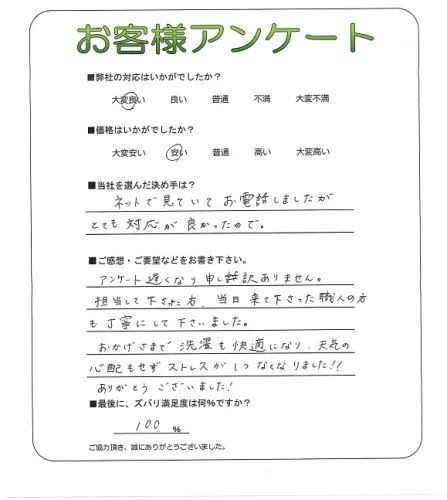 お客様アンケート
■弊社の対応はいかがでしたか？
大変良い 良い 普通 不満 大変不満
■価格はいかがでしたか？
大変安い 安い 普通 高い 大変高い
■当社を選んだ決め手は？
ネットで見ていてお電話しましたが
とても対応が良かったので。
■ご感想・ご要望などをお書き下さい。
アンケート遅くなり申し訳ありません。
担当して下された方、当日来て下さった職人の方
も丁寧にして下さいました。
おかげさまで洗濯も快適になり、天気の
心配もせずストレスが1つなくなりました!!
ありがとうございました!
■最後に、ズバリ満足度は何%ですか？
100 %
ご協力頂き、誠にありがとうございました。